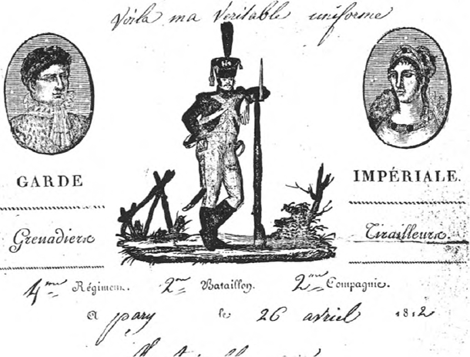 Voilà ma veritable uniforme
GARDE IMPÉRIALE.
Grenadiers Tirailleurs
4me Régiment. 2me Bataillon. 2me Compagnie.
A pary le 26 avril 1812